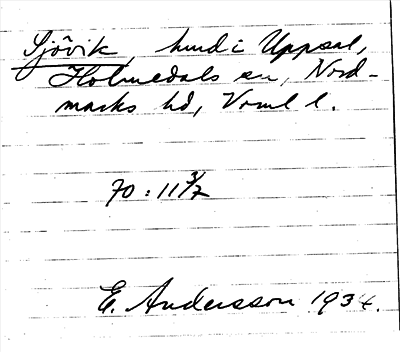 Sjövik, hmd i Uppsal,
Holmedals sn, Nord-
marks hd, Vrml l.
70 : 11 3/7
E. Andersson 1934.